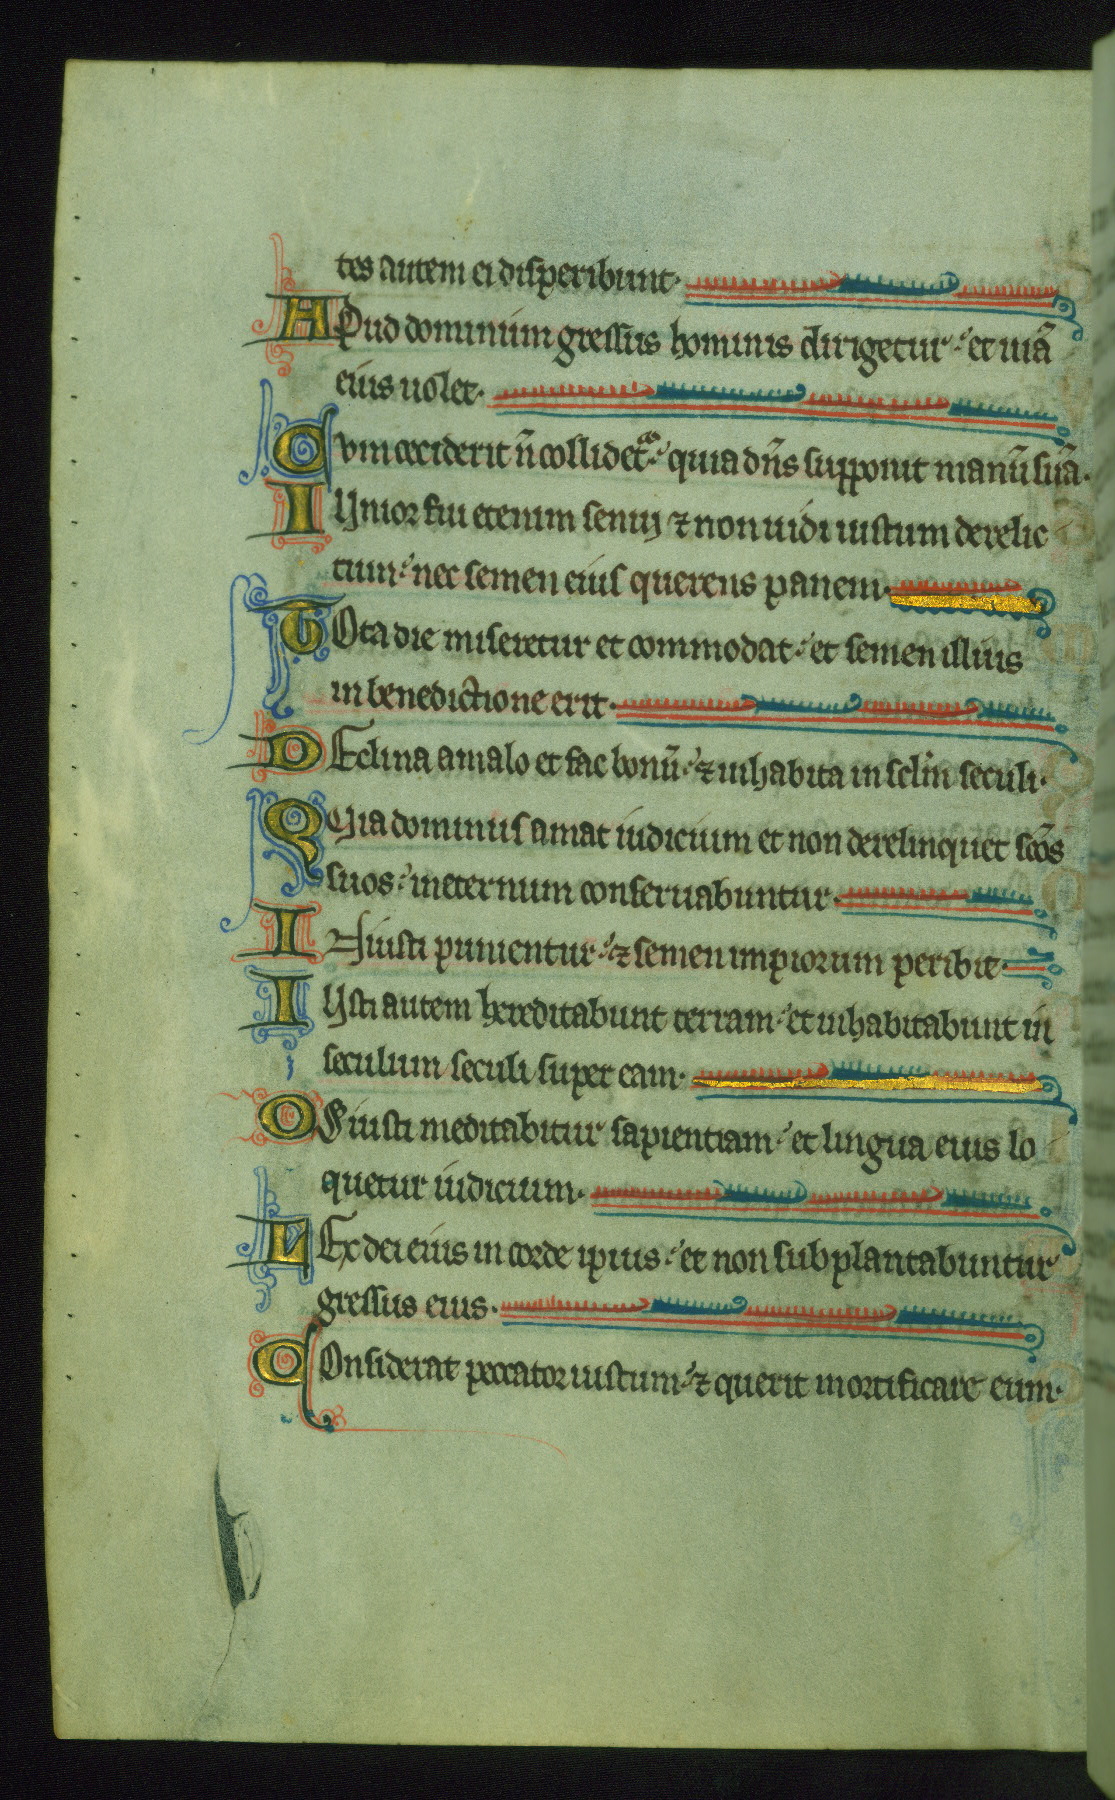 tes autem ei disperibunt·
APud dominum gressus hominis dirigetur· et uiā
eius uolet·
Cvm ceciderit n̄ collidet͛· quia dn̄s supponit manū suā·
IVnior fui etenim senui ⁊ non uidi iustum derelic
tum· nec semen eius querens panem·
TOta die miseretur et commodat· et semen illius
in benedictione erit·
DEclina a malo et fac bonū· ⁊ inhabita in sclm̄ seculi·
QVia dominus amat iudicium et non derelinquet sc̄os
suos· in eternum conseruabuntur·
INiusti punientur· ⁊ semen impiorum peribit·
IVsti autem hereditabunt terram· et inhabitabunt in
seculum seculi super eam·
OS iusti meditabitur sapientiam· et lingua eius lo
quetur iudicium·
LEx dei eius in corde ipius· et non subplantabuntur
gressus eius·
COnsiderat peccator iustum· ⁊ querit mortificare eum·